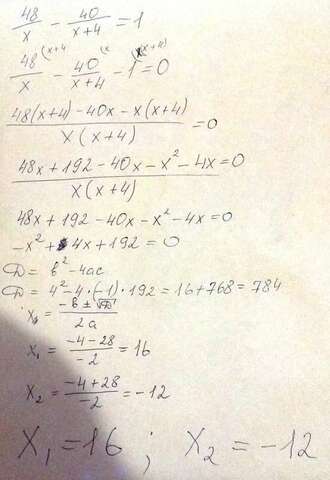 48/x - 40/x+4 = 1
48/x (x+4 - 40/x+4 (x - 1 (x(x+4) = 0
48(x+4) - 40x - x(x+4) / x(x+4) = 0
48x + 192 - 40x - x² - 4x / x(x+4) = 0
48x + 192 - 40x - x² - 4x = 0
-x² + 4x + 192 = 0
D = b² - 4ac
D = 4² - 4·(-1)·192 = 16 + 768 = 784
x = -b ± √D / 2a
x₁ = -4-28 / -2 = 16
x₂ = -4+28 / -2 = -12
x₁ = 16 ; x₂ = -12